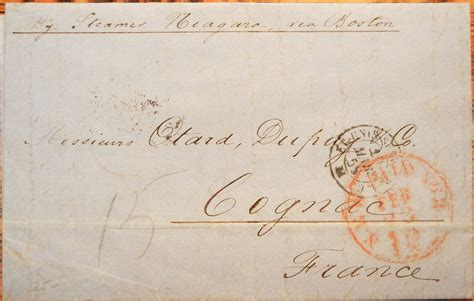 By Steamer Niagara, via Boston
Messieurs Otard, Dupuy & Co.
Cognac
France
15
PAID
FEB
12